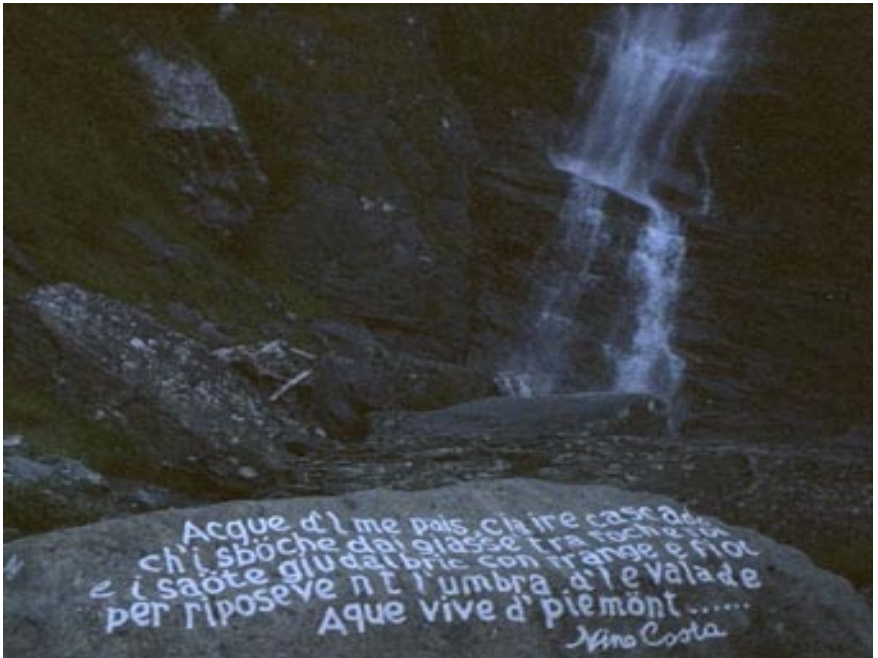 Acque d'l me pais claire cascade
ch'i sböche dal giasse tra roche
e i saöte giu dal bric con frange e fioc
per riposeve nt l'umbra d'le valade
Aque vive d' piemönt ......
Nino Costa